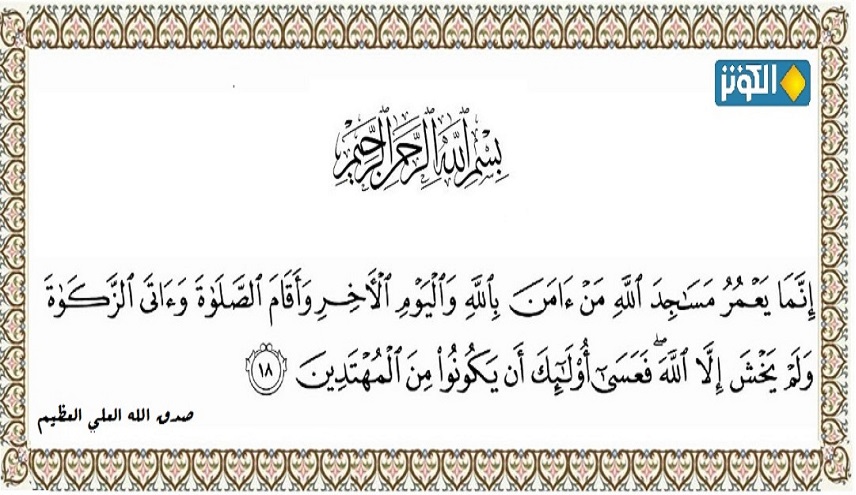 الكوثر
بِسْمِ ٱللَّهِ ٱلرَّحْمَٰنِ ٱلرَّحِيمِ
إِنَّمَا يَعْمُرُ مَسَٰجِدَ ٱللَّهِ مَنْ ءَامَنَ بِٱللَّهِ وَٱلْيَوْمِ ٱلْأَخِرِ وَأَقَامَ ٱلصَّلَوٰةَ وَءَاتَى ٱلزَّكَوٰةَ
وَلَمْ يَخْشَ إِلَّا ٱللَّهَ ۖ فَعَسَىٰٓ أُو۟لَٰٓئِكَ أَن يَكُونُوا۟ مِنَ ٱلْمُهْتَدِينَ ١٨
صدق الله العلي العظيم